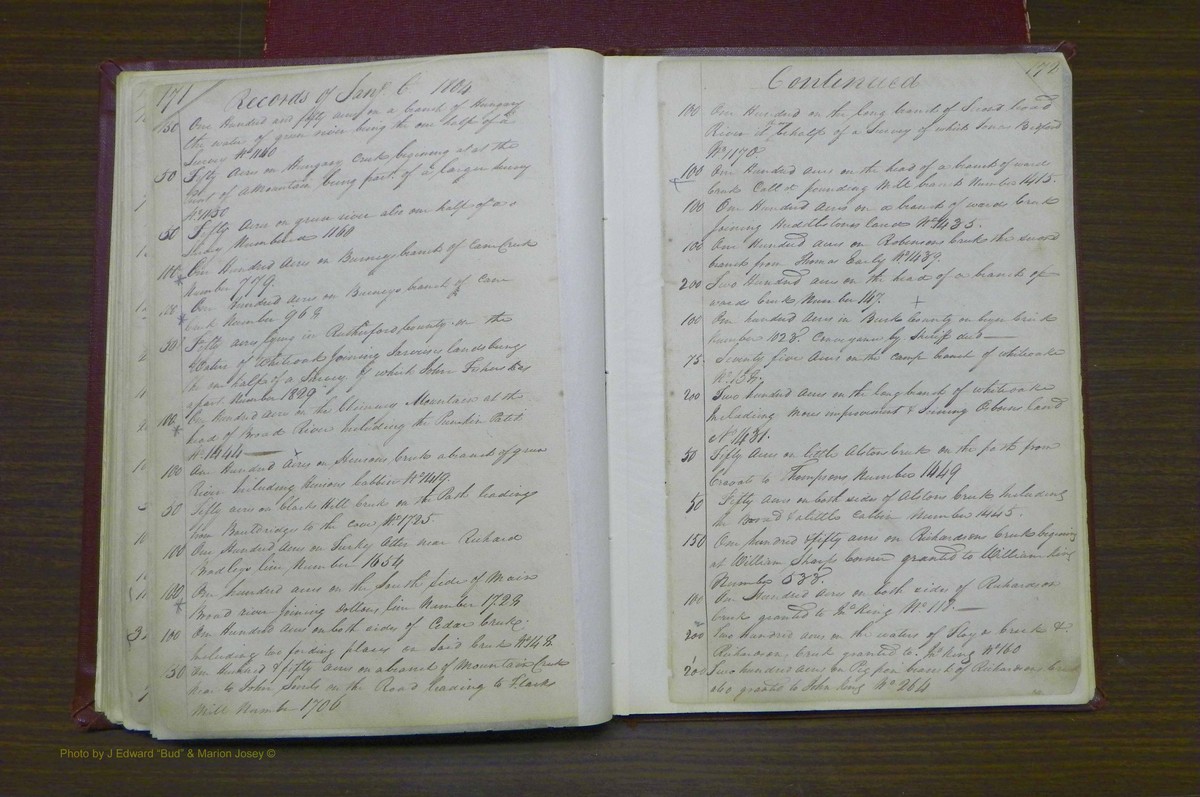 171 Records of Janʸ 6 1804
150 One Hundred and fifty acres on a branch of Hungary
the water of green river being the one half of a
Survey Nº 1140
50 Fifty Acres on Hungary Creek beginning at the
foot of a Mountain being part of a larger Survey
Nº 1150
50 Fifty Acres on green river also one half of a
Survey Number 1160
100 One Hundred Acres on Burneys branch of Cane Creek
Number 779.
One Hundred acres on Burneys branch of Cane
Creek Number 968
50 Fifty acres lying in Rutherford County on the
Waters of Whiteoak joining land being
the one half of a Survey of which John Fisher has
a part Number 1829
100 One Hundred acres on the Chimney Mountain at the
head of Broad River Including the Punchin Patch
Nº 1444
100 One Hundred Acres on Creek a branch of green
River Including Cabbin Nº 1419.
50 Fifty acres on Clarks Mill Creek on the Path leading
from to the Cove Nº 1725.
100 One Hundred Acres on near Richard
Bradleys line Number 1654
100 One hundred acres on the South Side of Main
Broad river joining line Number 1728
100 One Hundred Acres on both sides of Cedar Creek
Including two fording places on Said Creek Nº 148
50 One Hundred & fifty acres on a branch of Mountain Creek
near to John on the Road leading to Clarks
Mill Number 1706
Continued
100 One Hundred on the long branch of Second broad
River it half of a Survey of which Bedford
Nº 1170
100 One Hundred Acres on the head of a branch of wards
Creek Calld pounding Mill branch Number 1415.
100 One Hundred Acres on a branch of wards Creek
Joining Huddlestones land Nº 1435.
100 One Hundred acres on Robinsons Creek the second
branch from Thomas Early Nº 1439
200 Two Hundred acres on the head of a branch of
wards Creek Number 147.
100 One hundred acres in Burk County on Creek
Number 1023. Conveyance by Sheriff deed
75 Seventy five Acres on the Camp branch of whiteoake
200 Two hundred Acres on the long branch of whiteoake
Including improvement & Joining land
Nº 1431.
50 Fifty Acres on little Alstons Creek on the path from
to Thompsons Number 1449
50 Fifty acres on both sides of Alstons Creek Including
the Road & a little Cabbin Number 1445.
150 One hundred & fifty acres on Richardsons Creek beginning
at William Sharps Corner granted to William King
Number 533.
100 One Hundred Acres on both sides of Richardson
Creek granted to Jnº King Nº 118.
200 Two hundred acres on the waters of Creek &
Richardson Creek granted to Jnº King Nº 160
200 Two hundred Acres on branch of Richardsons Creek
also granted to John King Nº 264
Photo by J Edward "Bud" & Marion Josey ©